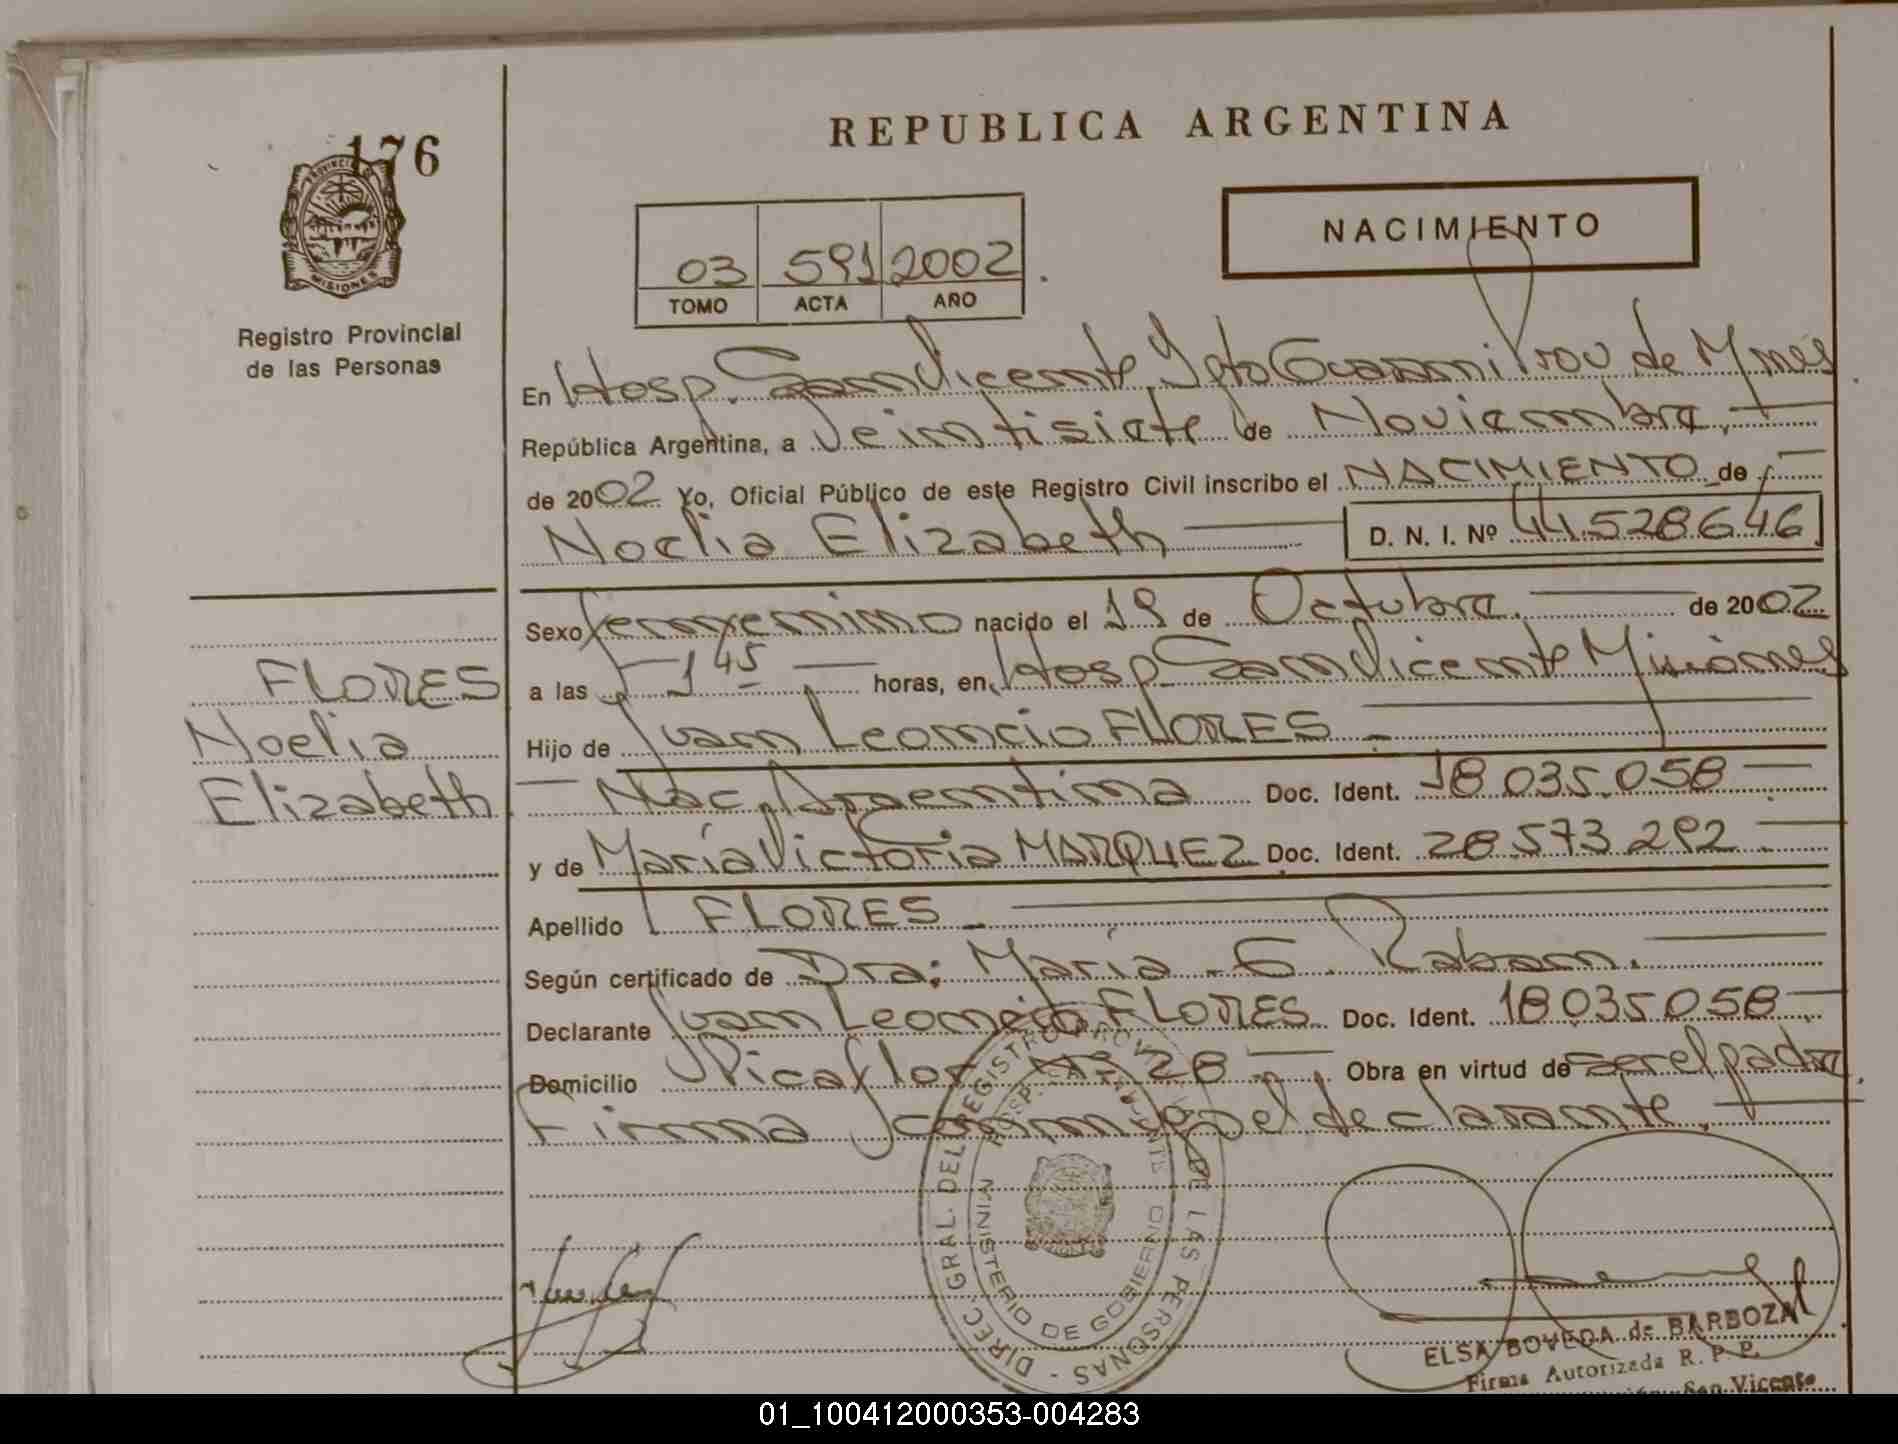 REPUBLICA ARGENTINA
176
NACIMIENTO
03 591 2002
TOMO ACTA AÑO
PROVINCIA DE MISIONES
Registro Provincial
de las Personas
En Hosp. San Vicente, Dpto Guaraní Prov de Mnes
República Argentina, a Veintisiete de Noviembre,
de 2002 Yo, Oficial Público de este Registro Civil inscribo el NACIMIENTO de
Noelia Elizabeth D. N. I. Nº 44.528.646
Sexo femenino nacido el 19 de Octubre de 2002
a las 1 45 horas, en Hosp San Vicente Misiones
FLORES
Noelia
Elizabeth
Hijo de Juan Leoncio FLORES
Nac. Argentina Doc. Ident. 18 035.058
y de María Victoria MARQUEZ Doc. Ident. 28.573.292
Apellido FLORES
Según certificado de Dra: María G. Raban.
Declarante Juan Leoncio FLORES Doc. Ident. 18 035 058
Domicilio Picaflor Nº 28 Obra en virtud de ser el padre
Firma conmigo el declarante.
DIREC. GRAL. DEL REGISTRO PROV. DE LAS PERSONAS
MINISTERIO DE GOBIERNO
ELSA BOVEDA de BARBOZA
Firma Autorizada R. P. P.
San Vicente
01_100412000353-004283